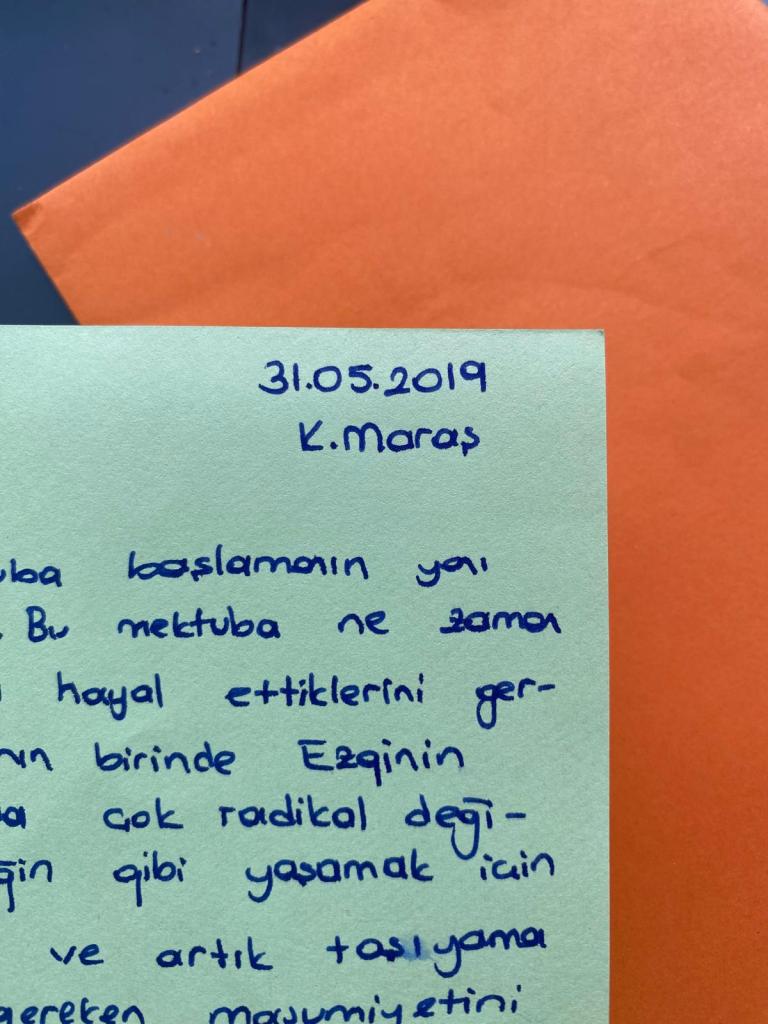 31.05.2019
K.Maraş
uba başlamanın yanı
. Bu mektuba ne zaman
hayal ettiklerini ger-
nın birinde Ezginin
a çok radikal deği-
ğin gibi yaşamak için
ve artık taşıyama
gereken masumiyetini